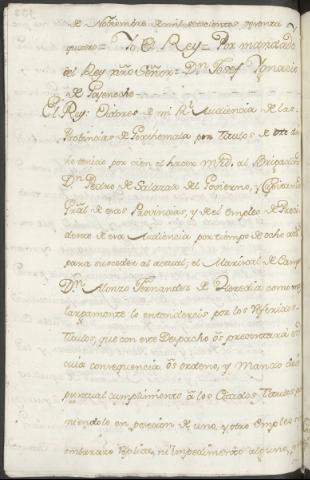 de Noviembre de mil setecientos sesenta y
quatro = Yo El Rey = Por mandado
del Rey nro Señor = Dn Josef Ygnacio
de Goyeneche
El Rey: Oidores de mi Rl Audiencia de las
Provincias de Goathemala por Titulos de
he tenido por vien el hacer mrd. al Brigadier
Dn Pedro de Salazar del Govierno, y Capitania
Gral de esas Provincias, y del empleo de Presi
dente de esa Audiencia por tiempo de ocho años
para suceder al actual, el Mariscal de Campo
Dn Alonzo Fernandez de Heredia como mas
largamente lo entendereis por los referidos
Titulos, que con este Despacho os presentará en
cuia consequencia os ordeno, y mando deis
puntual cumplimiento â los Citados Titulos po
niendolo en posesion de uno, y otro Empleo sin
embarazo replica, ni impedimento alguno,